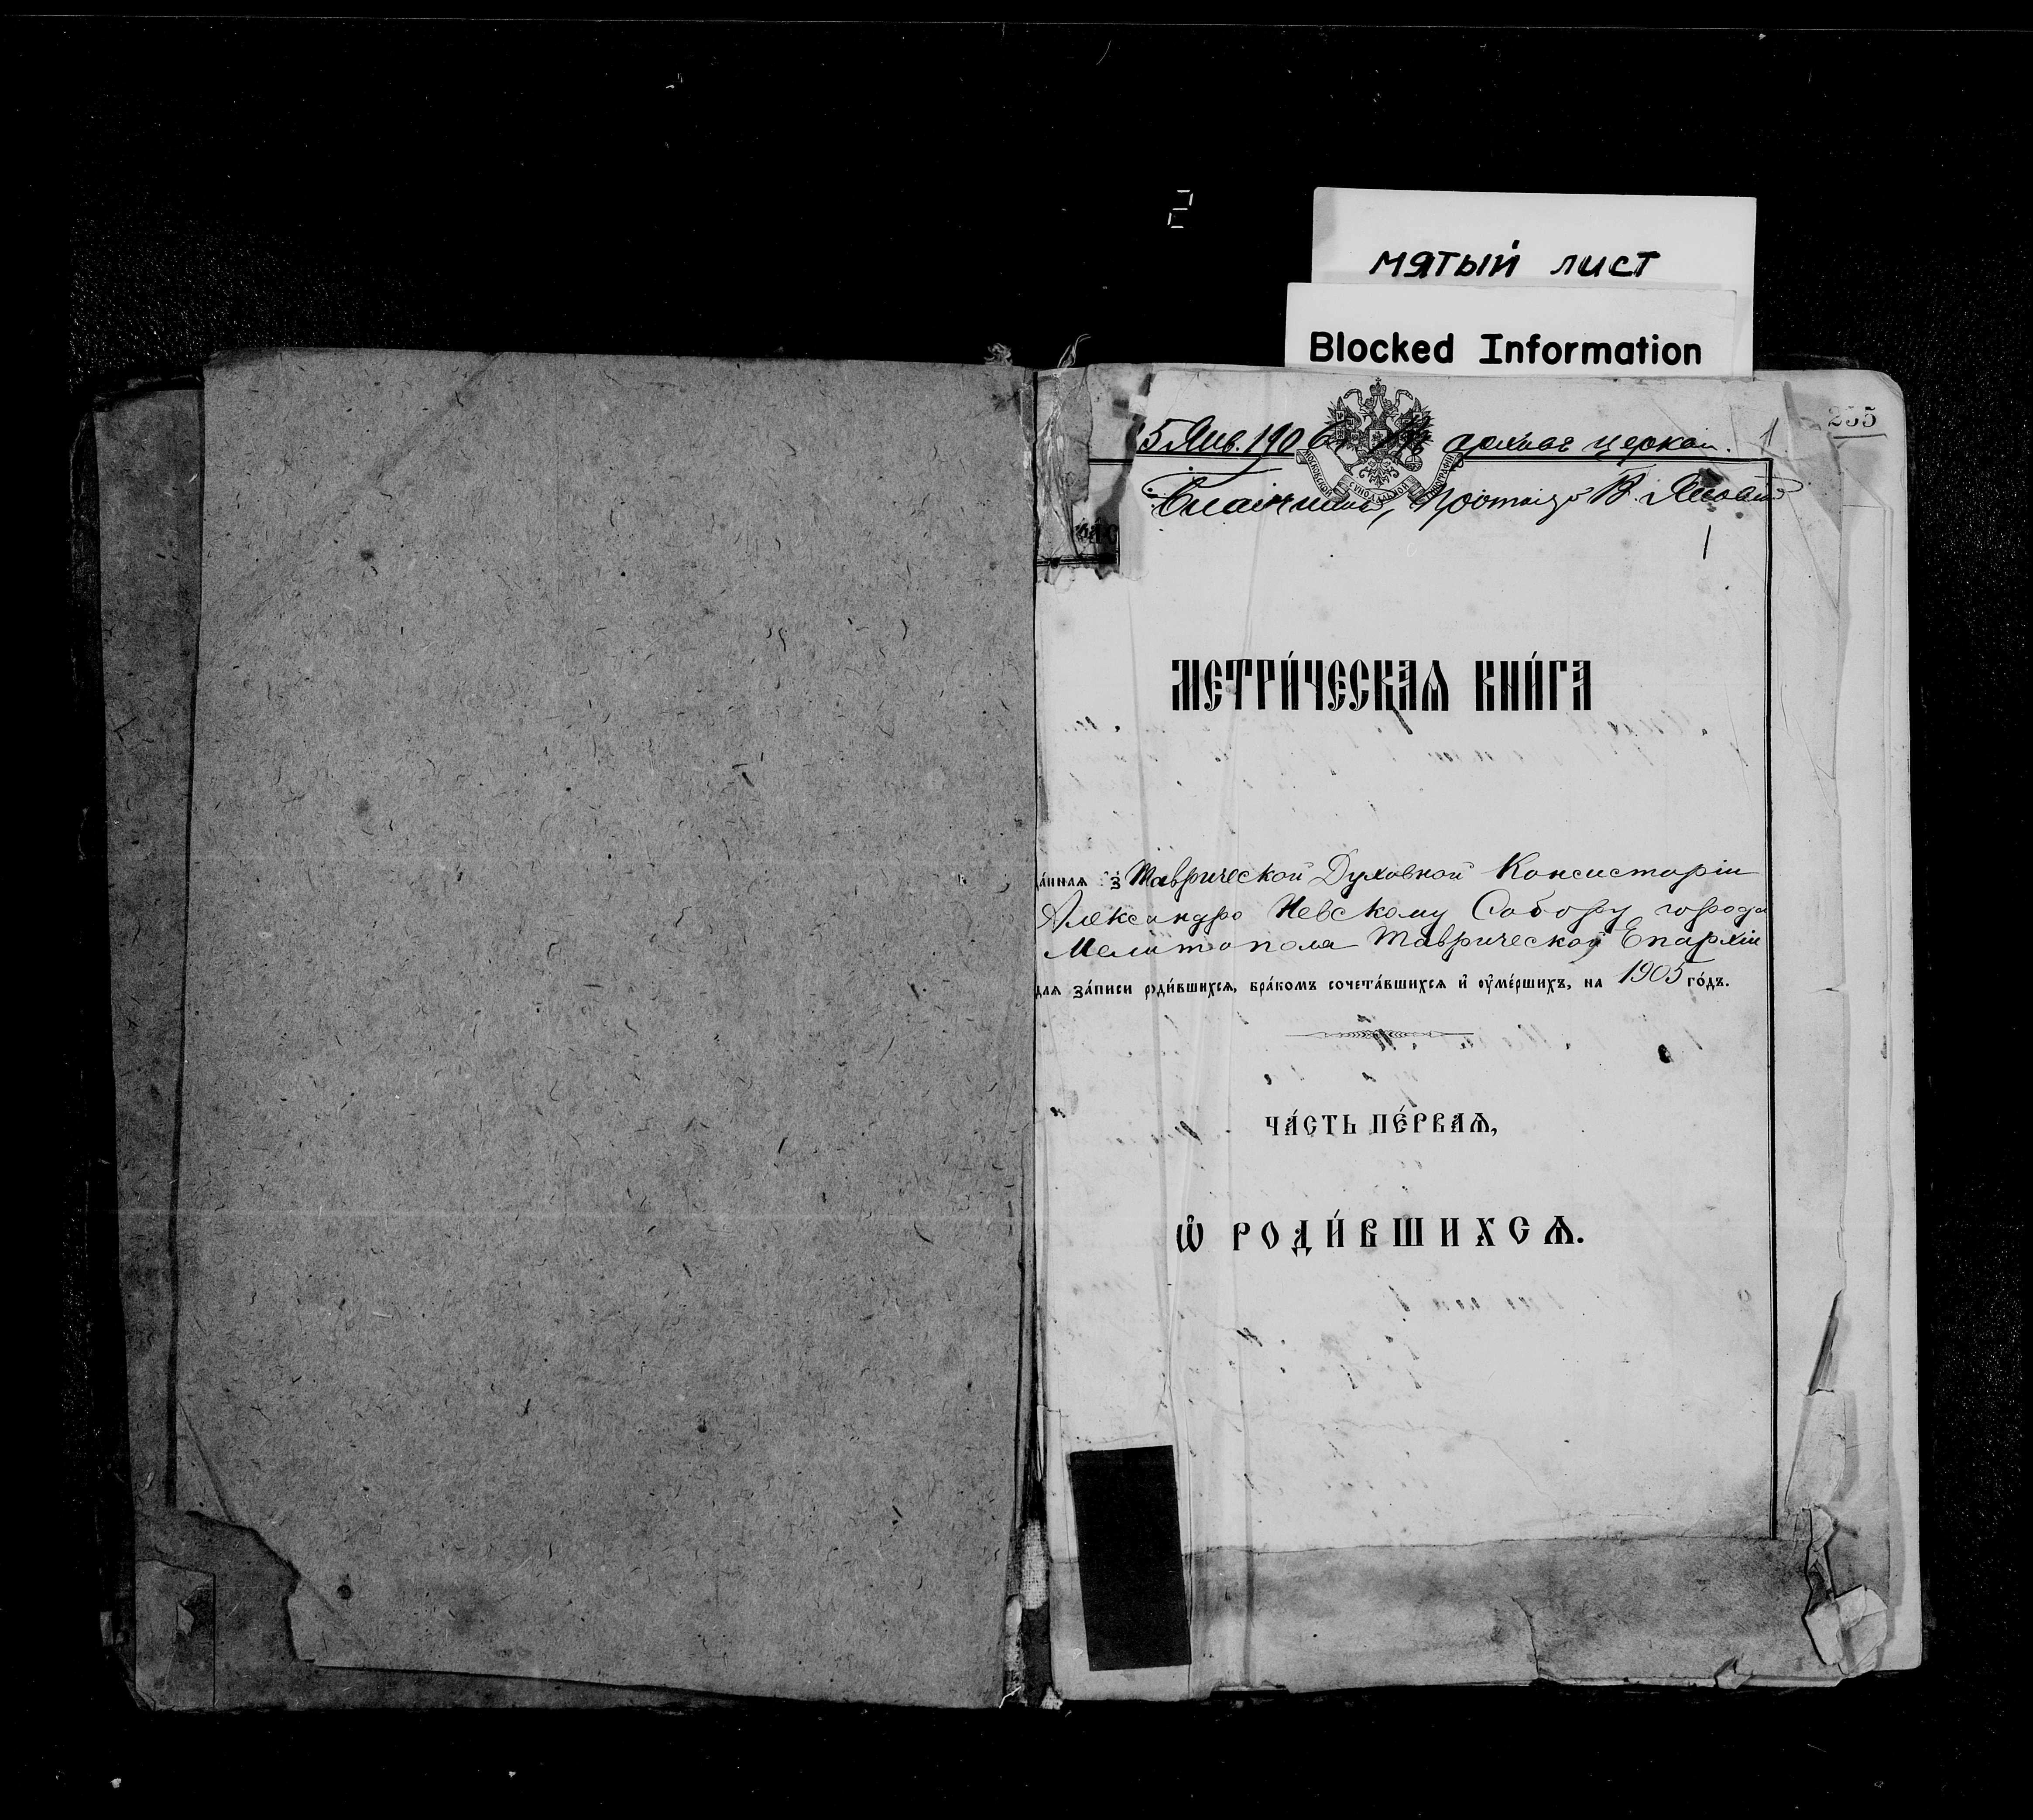 2
мятый лист
Blocked Information
255
5 Янв. 190 архивъ церкви. 1
МОСКОВСКОЙ СѴНОДАЛЬНОЙ ТИПОГРАФІИ
Благочинный, В.
1
МЕТРИ́ЧЕСКАѦ КНИ́ГА
да́нная и҆з̾ Таврической Духовной Консисторіи
Александро Невскому Собору города
Мелитополя Таврической Епархіи
для за́писи роди́вшихся, бра́комъ сочета́вшихся и҆ ᲂу҆ме́ршихъ, на 1905 го́дъ.
ЧА́СТЬ ПЕ́РВАѦ,
Ѽ РОДИ́ВШИХСѦ.